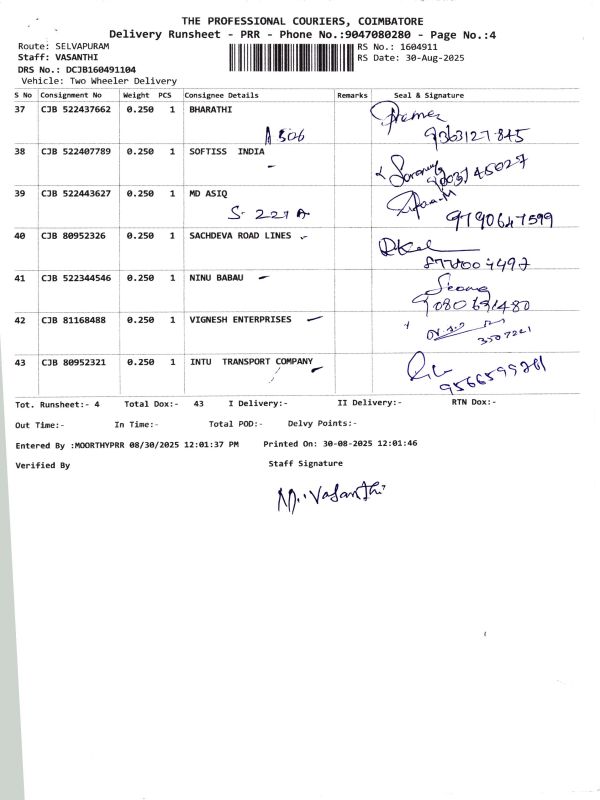 THE PROFESSIONAL COURIERS, COIMBATORE
Delivery Runsheet - PRR - Phone No.:9047080280 - Page No.:4
Route: SELVAPURAM
RS No.: 1604911
Staff: VASANTHI
RS Date: 30-Aug-2025
DRS No.: DCJB160491104
Vehicle: Two Wheeler Delivery
S No Consignment No Weight PCS Consignee Details Remarks Seal & Signature
37 CJB 522437662 0.250 1 BHARATHI
A 506 9363127845
38 CJB 522407789 0.250 1 SOFTISS INDIA
39 CJB 522443627 0.250 1 MD ASIQ
S- 221 A 9790647599
40 CJB 80952326 0.250 1 SACHDEVA ROAD LINES
41 CJB 522344546 0.250 1 NINU BABAU
42 CJB 81168488 0.250 1 VIGNESH ENTERPRISES
43 CJB 80952321 0.250 1 INTU TRANSPORT COMPANY
Tot. Runsheet:- 4 Total Dox:- 43 I Delivery:- II Delivery:- RTN Dox:-
Out Time:- In Time:- Total POD:- Delvy Points:-
Entered By :MOORTHYPRR 08/30/2025 12:01:37 PM Printed On: 30-08-2025 12:01:46
Verified By Staff Signature
M. Vasanthi